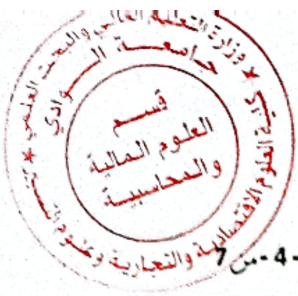 وزارة التعليم العالي والبحث العلمي
جامعة الوادي
كلية العلوم الاقتصادية والتجارية وعلوم التسيير
قسم
العلوم المالية
والمحاسبية
7 من -4-